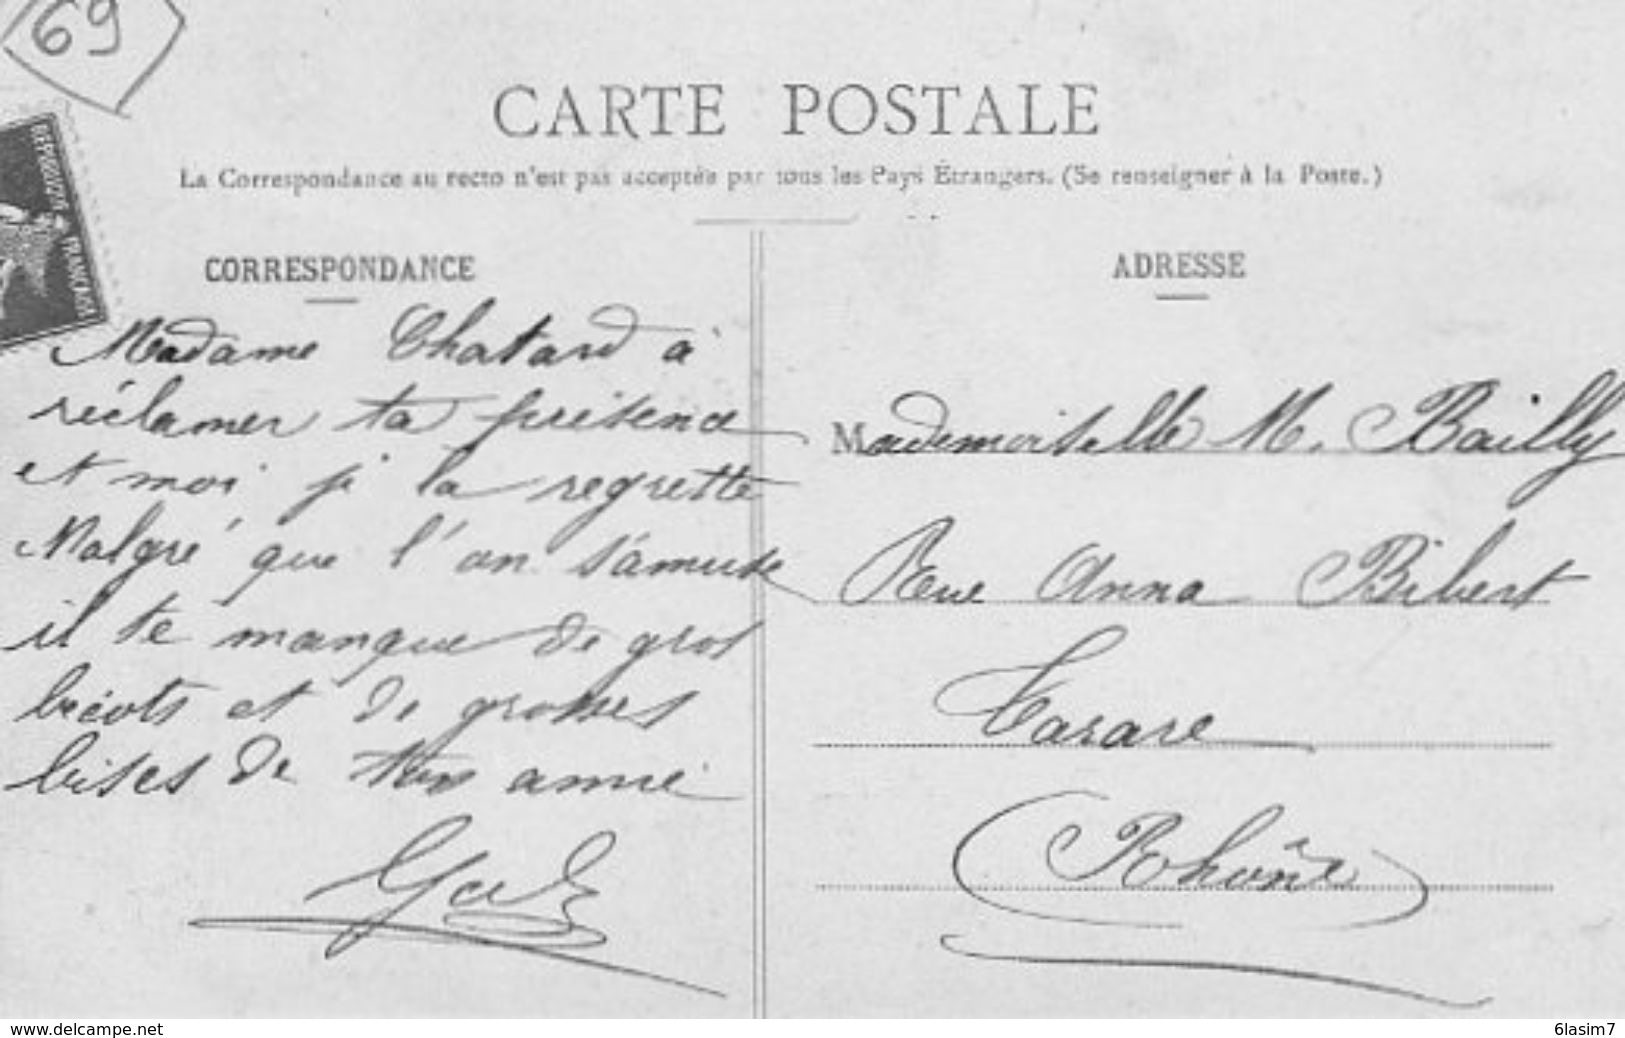 69
CARTE POSTALE
La Correspondance au recto n'est pas acceptée par tous les Pays Étrangers. (Se renseigner à la Poste.)
REPUBLIQUE FRANÇAISE
CORRESPONDANCE
Madame Chatard à
réclamer ta présence
et moi je la regrette
Malgré que l'on s'amuse
il te manque de gros
bécots et de grosses
bises de ton amie
ADRESSE
Mademoiselle M. Bailly
Rue Anna Bibert
Tarare
(Rhône)
www.delcampe.net
6lasim7